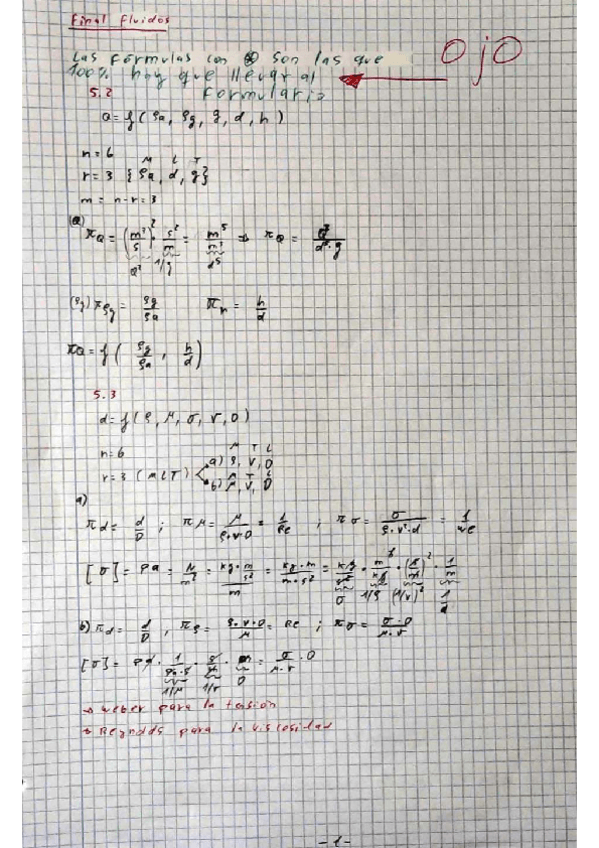 Final fluidos
Las fórmulas con son las que
100% hay que llevar al
formulario
Ojo
5.2
Q = f ( ρa, ρg, g, d, h )
n = 6
M L T
r = 3 { ρa, d, g }
m = n - r = 3
(Q) πQ = (m³/s)² · s²/m = m⁵ ⇒ πQ = Q²/d⁵·g
Q² 1/g d⁵
(ρg) πρg = ρg/ρa πh = h/d
πQ = f ( ρg/ρa , h/d )
5.3
d = f ( ρ, μ, σ, V, D )
n = 6
M T L
r = 3 (MLT) a) ρ, V, D
M T L
b) μ, V, D
a)
πd = d/D ; πμ = μ/ρ·V·D = 1/Re ; πσ = σ/ρ·V²·d = 1/We
[σ] = Pa = N/m² = kg·m/s² / m = kg·m/m·s² = kg/s² · m³/kg · (s/m)² · 1/m
σ 1/ρ (1/V)² 1/d
b) πd = d/D , πρ = ρ·V·D/μ = Re ; πσ = σ·D/μ·V
[σ] = Pa · 1/Pa·s · s/m · m = σ/μ·V · D
1/μ 1/V D
→ Weber para la tensión
→ Reynolds para la viscosidad
- 1 -